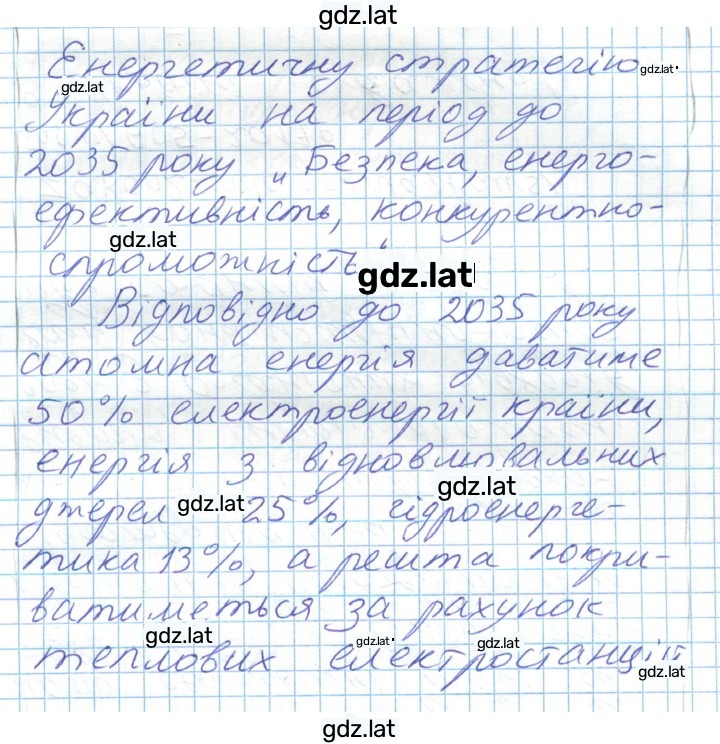 gdz.lat
Енергетичну стратегію gdz.lat
gdz.lat
України на період до
2035 року „Безпека, енерго-
ефективність, конкурентно-
gdz.lat
спроможність“
gdz.lat
Відповідно до 2035 року
атомна енергія даватиме
50% електроенергії країни,
енергія з відновлювальних
gdz.lat
джерел gdz.lat 25%, гідроенерге-
тика 13%, а решта покри-
ватиметься за рахунок
gdz.lat gdz.lat gdz.lat
теплових електростанцій
gdz.lat
gdz.lat